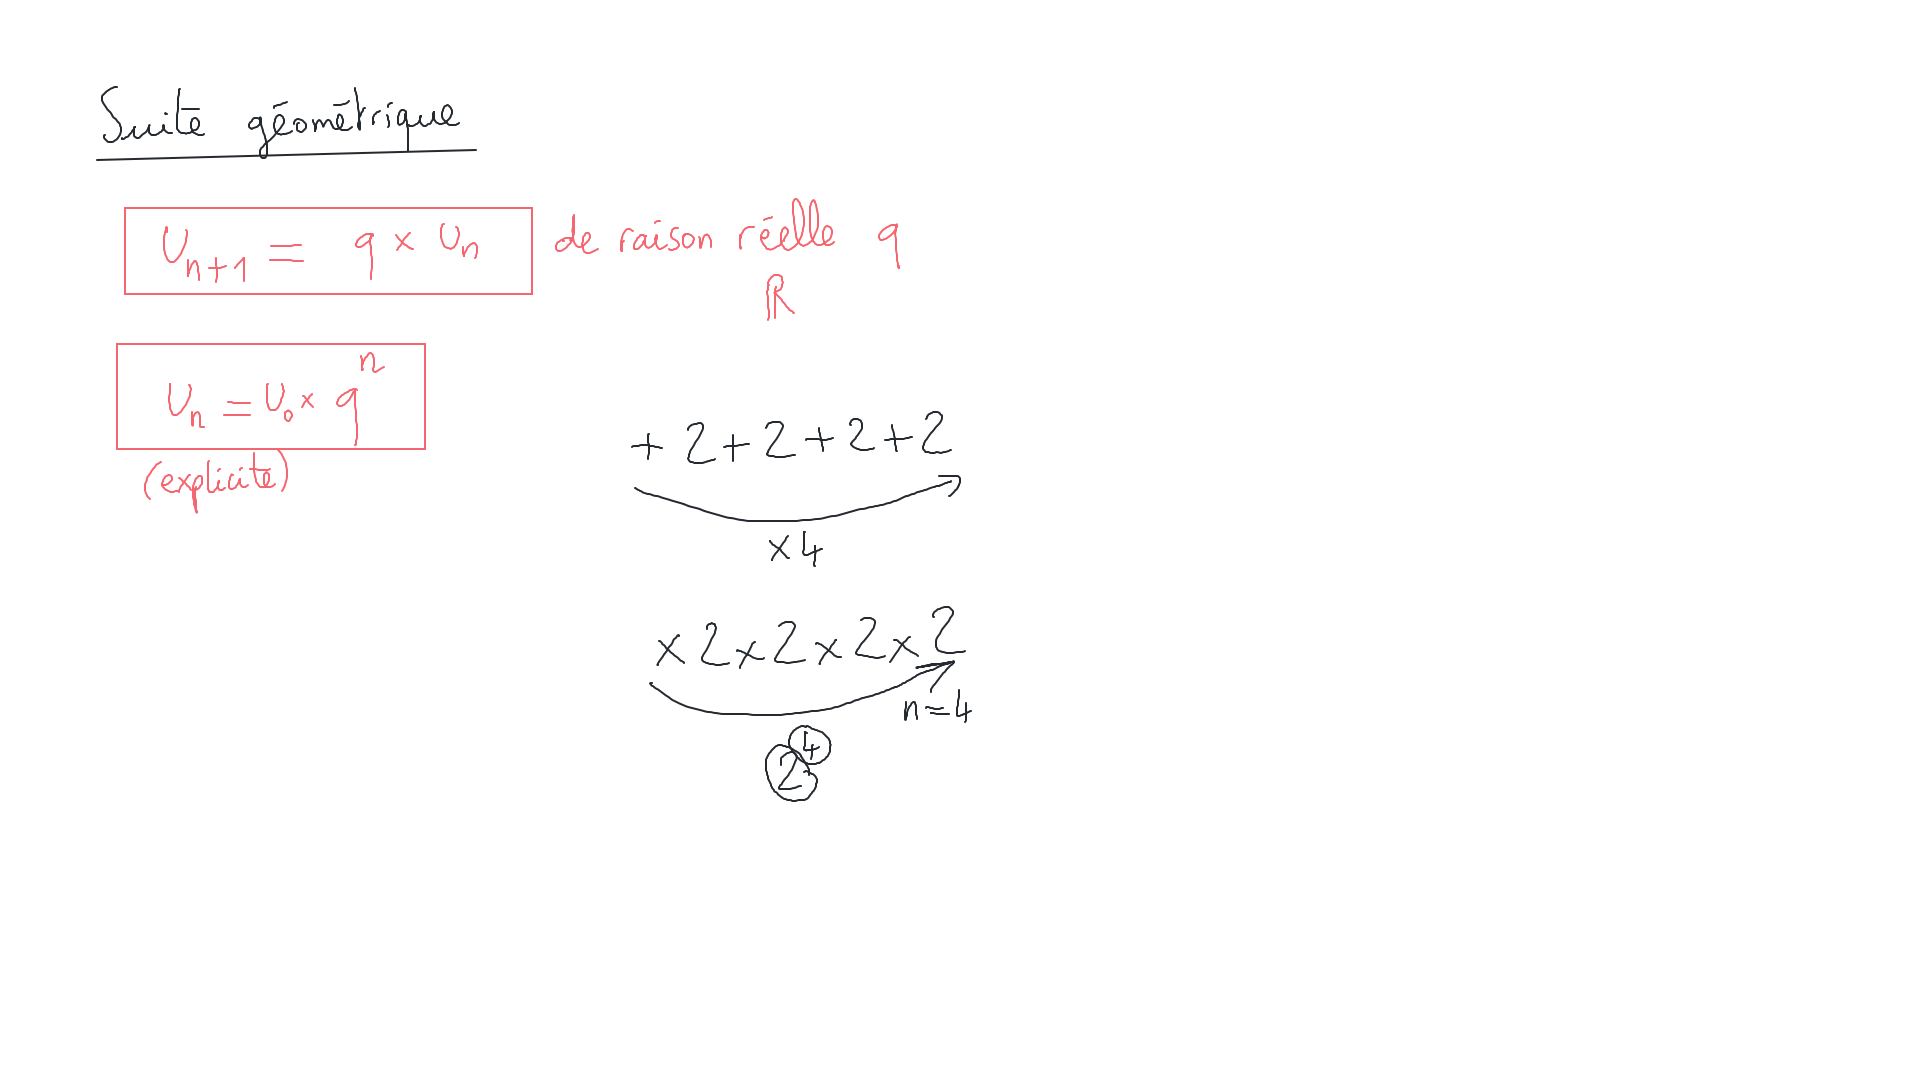 Suite géométrique
U_{n+1} = q × U_n de raison réelle q
ℝ
U_n = U_0 × q^n
(explicite)
+ 2 + 2 + 2 + 2
× 4
× 2 × 2 × 2 × 2
n = 4
2^4